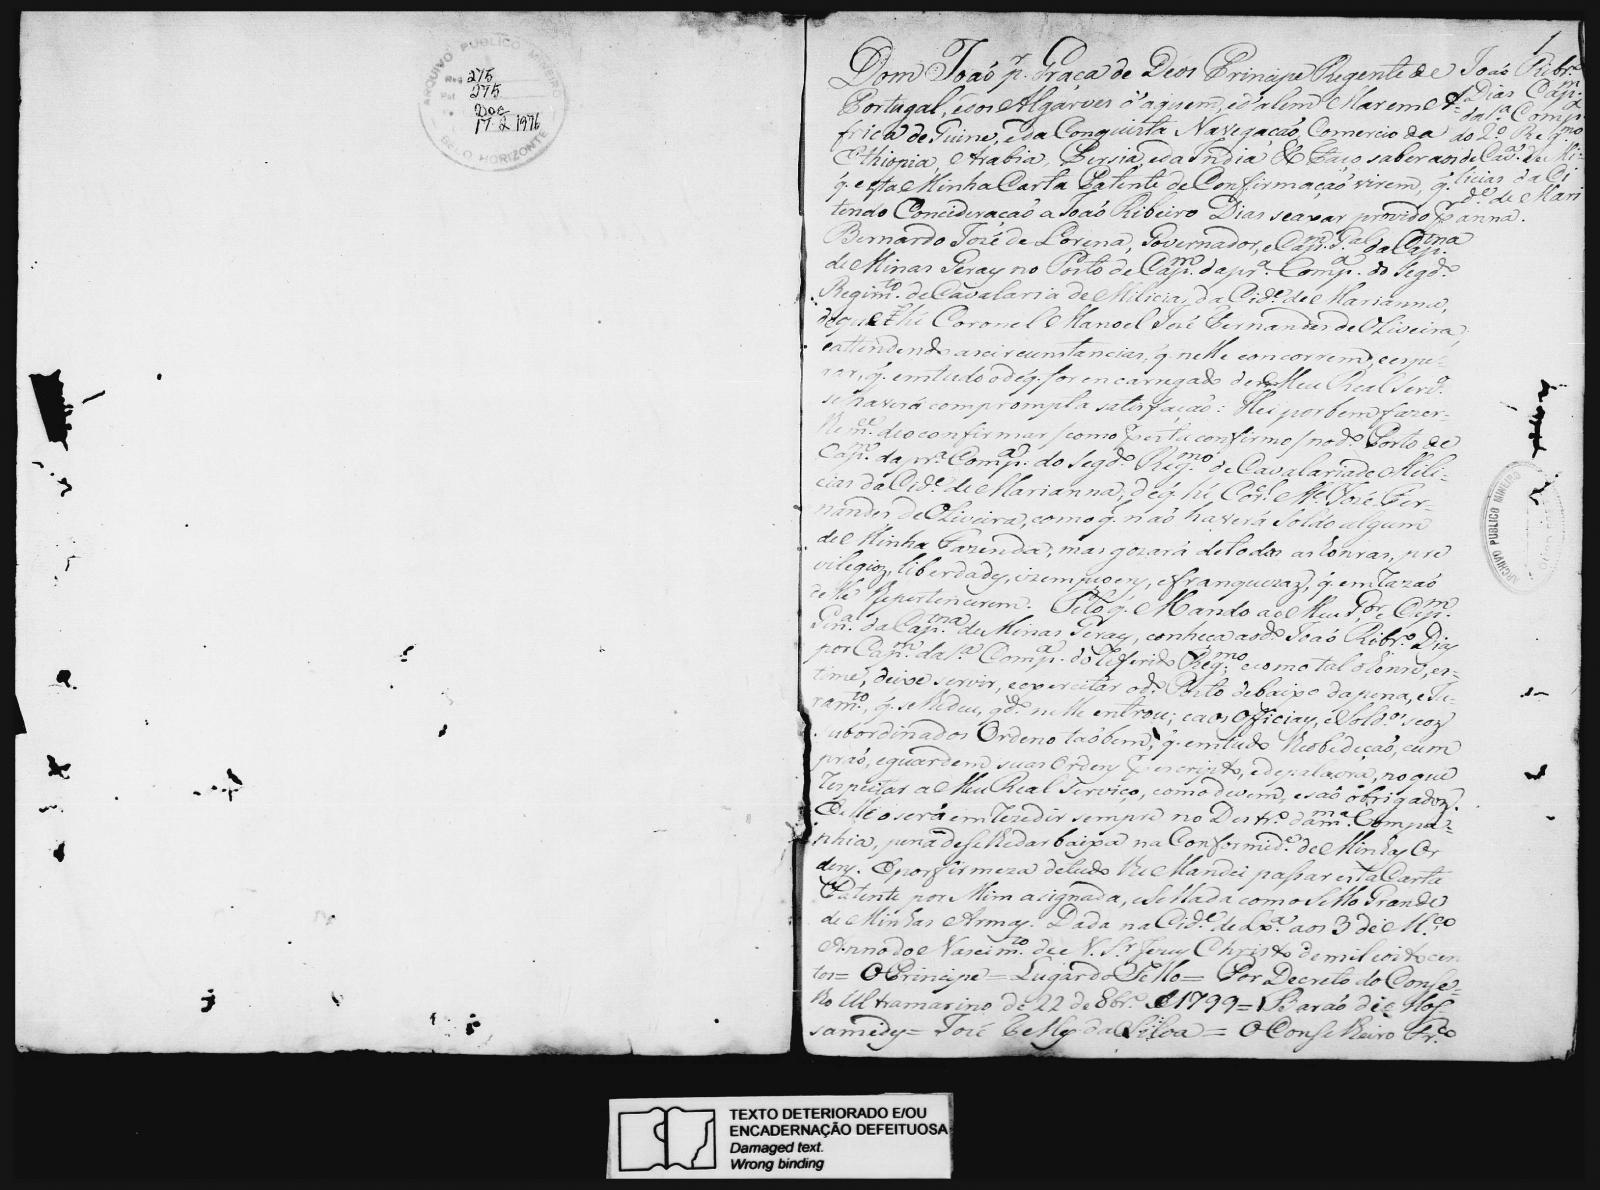 ARQUIVO PUBLICO MINEIRO
275
275
Doc
17-2 1976
BELO HORIZONTE
1
Dom Joaõ p.r Graça de Deos Principe Regente de
Portugal, e dos Algarves d'aquem, e d'alem Mar em A
frica de Guine, e da Conquista Navegaçaõ, Comercio da
Ethiopia, Arabia, Persia, e da India &c Faço saber aos
q. esta Minha Carta Patente de Confirmaçaõ virem, q.
tendo Concideraçaõ a Joaõ Ribeiro Dias se axar provido p
Bernardo José de Lorena, Governador, e Cap.m G.al da Cap.nia
de Minas Geray no Posto de Cap.m da pr.a Comp.a do Segd.o
Regim.to de Cavalaria de Milicia, da Cid.e de Marianna,
de que hé Coronel Manoel José Fernandes de Oliveira,
e attendendo as circumstancias, q. nelle concorrem, e espe-
rar, q. em tudo o de q. for encarregado de Meu Real Serv.o
se haverá com prompta satisfaçaõ: Hei por bem fazer-
lhe m.ce de o confirmar / como por esta confirmo / no d.o Posto de
Cap.m da pr.a Comp.a do Segd.o Reg.mo de Cavalaria de Mili-
cias da Cid.e de Marianna, de q. hé Cor.el M.el José Fer-
nandes de Oliveira, com o q. naõ haverá Soldo algum
de Minha Fazenda, mas gozará de todas as honras, pre
vilegioz, liberdady, izempçoeny, e franquezaz, q. em razaõ
delle lhe pertencerem. Pelo q. Mando ao Meu G.or e Cap.m
Gen.al da Cap.nia de Minas Geray, conheça ao d.o Joaõ Ribr.o Dias
por Cap.m da 1.a Comp.a do Referido Reg.mo e como tal o honre, es-
time, deixe servir, e exercitar o d.o Posto debaixo da pena, e Ju-
ram.to, q. se lhe deu, qd.o nelle entrou; e aos Officiay, e Sold.os seoz
subordinados Ordeno taõbem, q. em tudo lhe obedeçaõ, cum
praõ, e guardem suas Ordeny por escripto, e de palavra, no que
respeitar a Meu Real Serviço, como devem, e saõ obrigadoz.
Elle será em rezedir sempre no Destr.o da m.ma Compa-
nhia, pena de se lhe dar baixa na Conformid.e de Minhas Or
deny. E por firmeza de tudo lhe Mandei passar esta Carta
Patente por Mim asignada, e Sellada com o Sello Grande
de Minhas Armay. Dada na Cid.e de Lx.a aos 3 de M.ço
Anno do Nascim.to de N. S.r Jesus Christo de mil e oitocen
tos = O Principe = Lugar do Sello = Por Decreto do Conse-
lho Ultramarino de 22 de 8br.o de 1799 = Baraõ de Mos
samedy = José Telley da Silva = O Conselheiro Fr.co
Joaõ Ribr.o
Dias Cap.m
da 1.a Comp.a
do 2.o Reg.mo
de Cav.a de Mi-
licias da Ci
d.e de Mari
anna.
ARCHIVO PUBLICO MINEIRO
TEXTO DETERIORADO E/OU
ENCADERNAÇÃO DEFEITUOSA
Damaged text.
Wrong binding